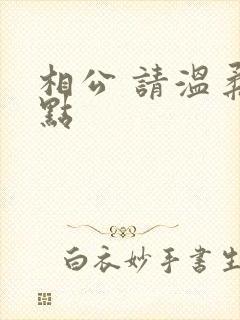 相公 請溫柔
點
白衣妙手書生